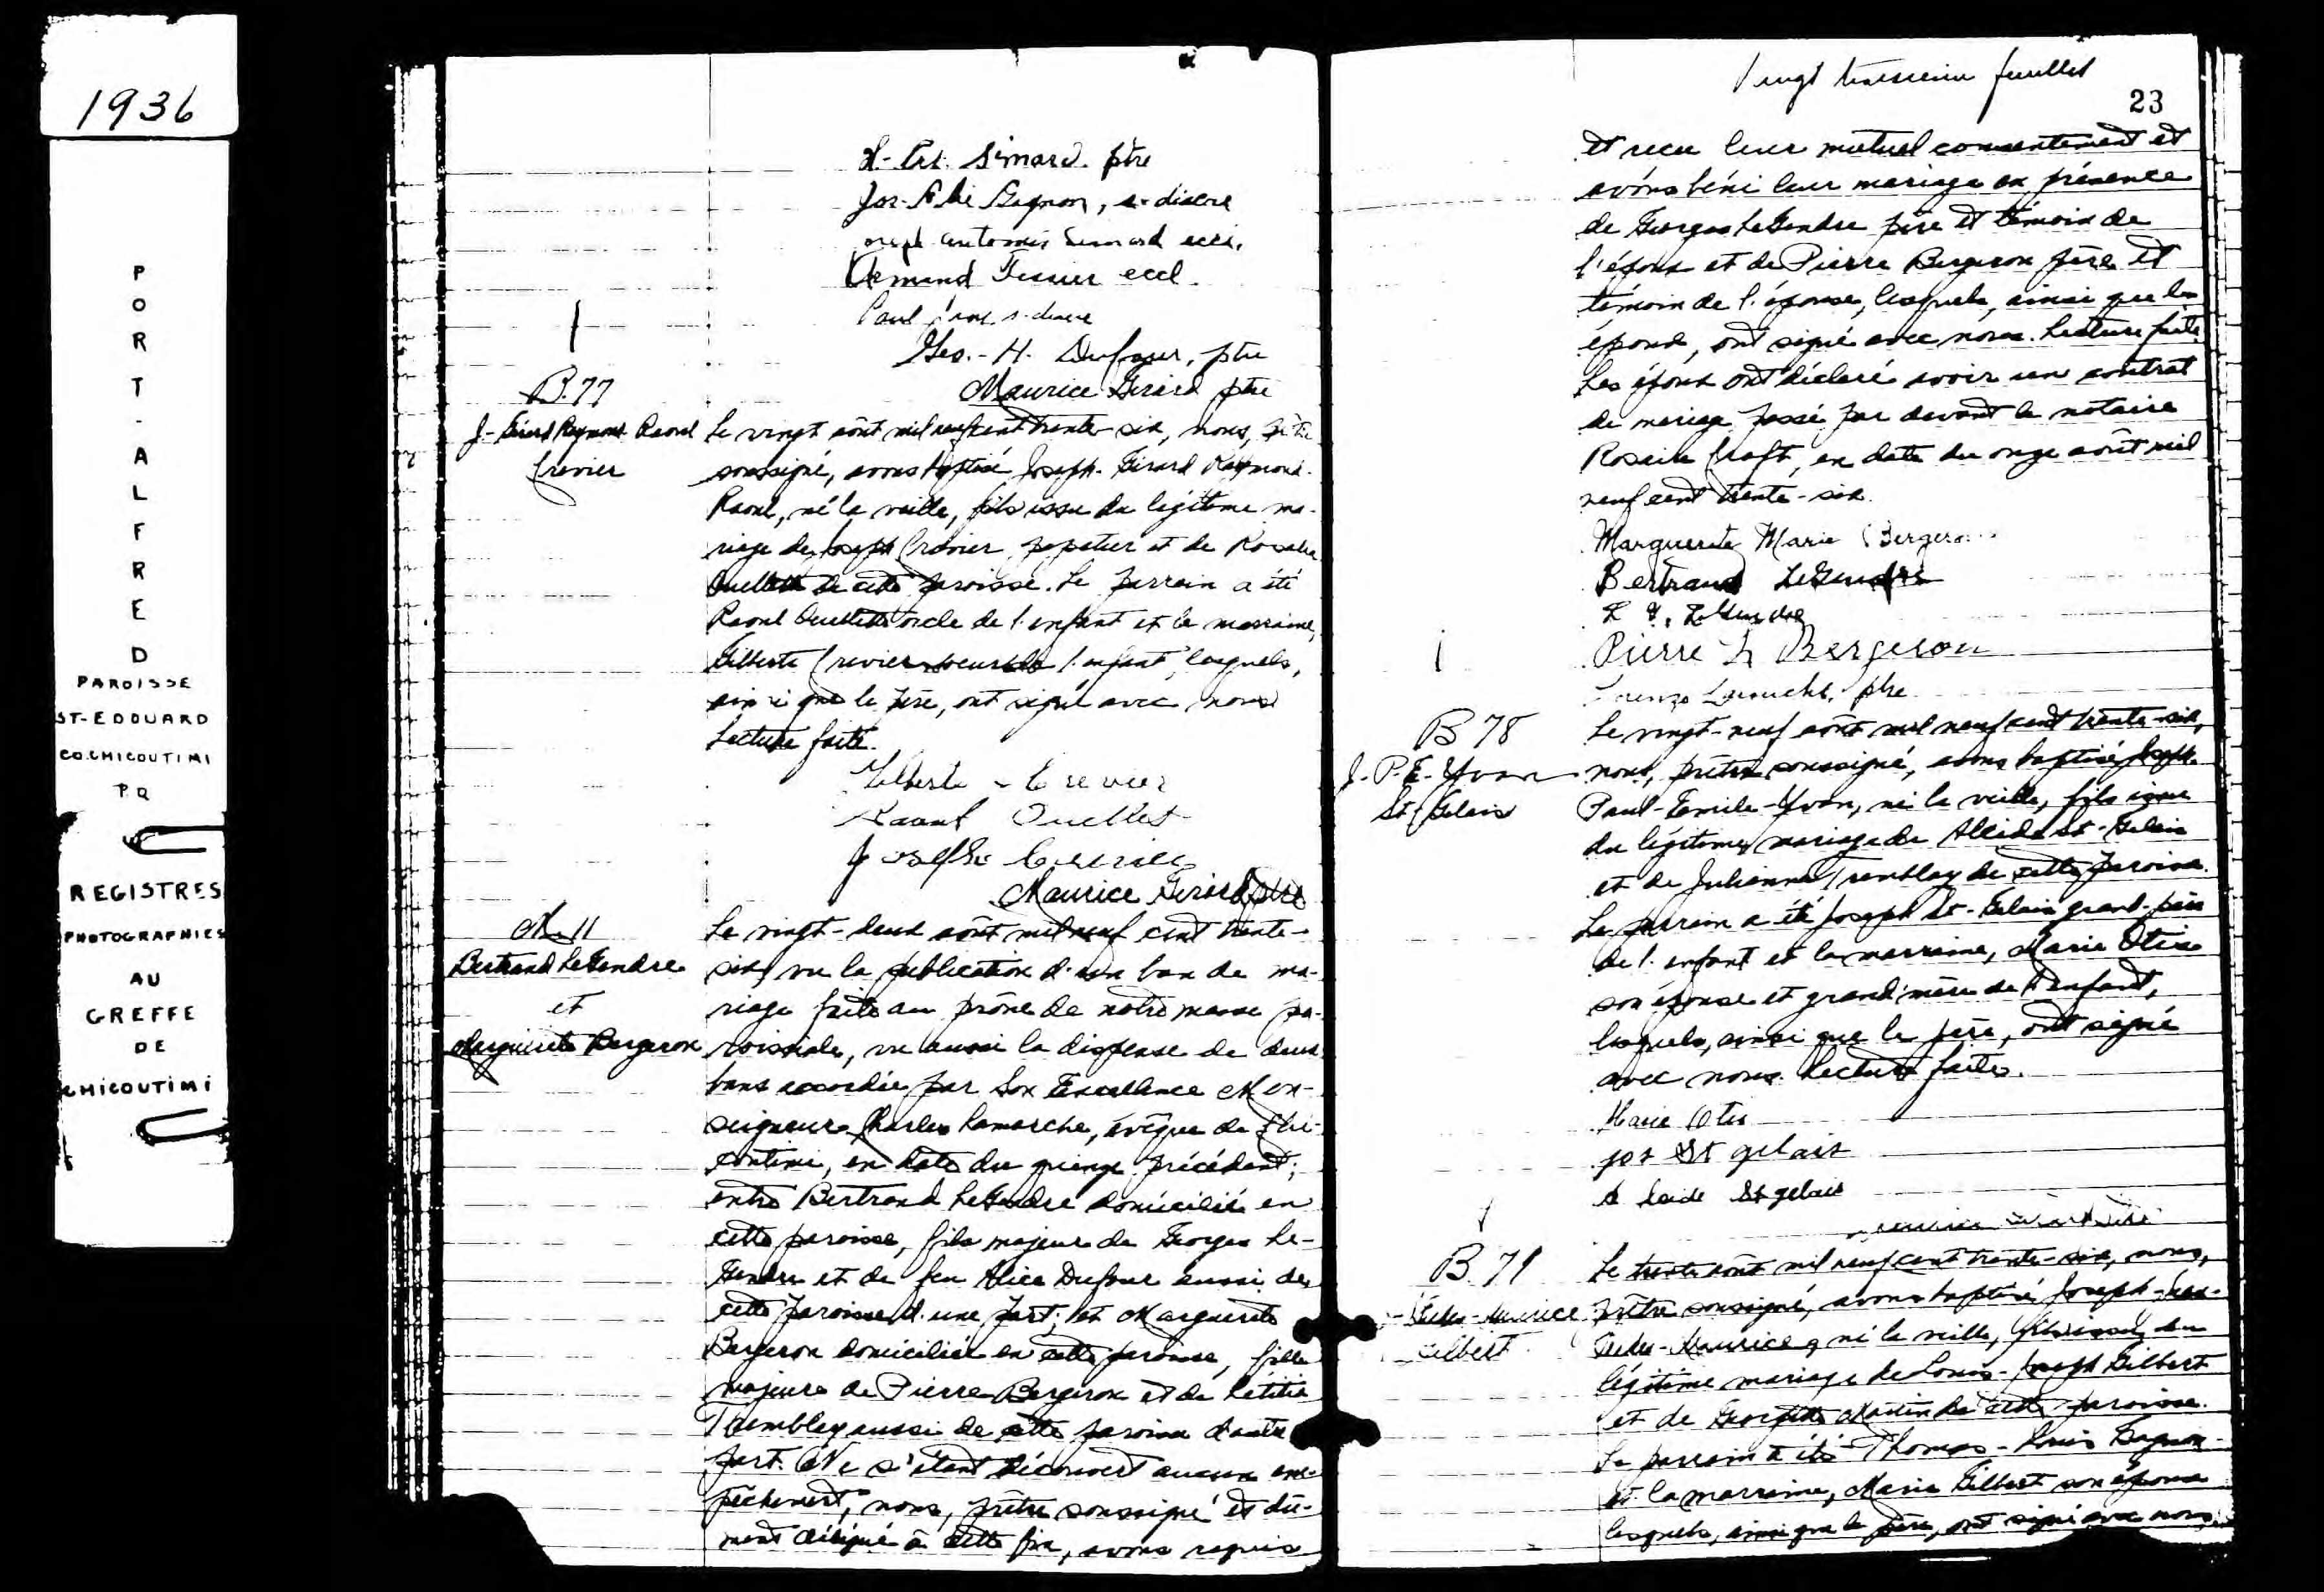 1936
PORT-ALFRED
PAROISSE
ST-EDOUARD
CO. CHICOUTIMI
P.Q
REGISTRES
PHOTOGRAPHIES
AU
GREFFE
DE
CHICOUTIMI
Simard. ptre
Gagnon, s-diacre
Simard eccl.
Armand Tessier eccl.
Paul s-diacre
Geo.-H. ptre
Maurice Girard ptre
B.77
J- Girard Raymond Raoul
Crevier
Le vingt août mil neuf cent trente-six, nous, prêtre
soussigné, avons baptisé Joseph-Girard Raymond-
Raoul, né la veille, fils issu du légitime ma-
riage de Joseph Crevier papetier et de
Ouellette de cette paroisse. Le parrain a été
Raoul Ouellette oncle de l'enfant et la marraine,
Gilberte Crevier soeur de l'enfant, lesquels,
ainsi que le père, ont signé avec nous
Lecture faite.
Gilberte Crevier
Raoul Ouellet
Joseph Crevier
Maurice Girard ptre
M. 11
Bertrand LeGendre
et
Marguerite Bergeron
Le vingt-deux août mil neuf cent trente-
six, vu la publication d'un ban de ma-
riage faite au prône de notre messe pa-
roissiale, vu aussi la dispense de deux
bans accordée par Son Excellence Mon-
seigneur Charles Lamarche, évêque de Chi-
coutimi, en date du quinze précédent;
entre Bertrand LeGendre domicilié en
cette paroisse, fils majeur de Georges Le-
Gendre et de feu Alice Dufour aussi de
cette paroisse d'une part; et Marguerite
Bergeron domiciliée en cette paroisse, fille
majeure de Pierre Bergeron et de Létitia
Tremblay aussi de cette paroisse d'autre
part. Ne s'étant découvert aucun em-
pêchement, nous, prêtre soussigné et dû-
ment délégué à cette fin, avons requis
Vingt troisième feuillet
23
et reçu leur mutuel consentement et
avons béni leur mariage en présence
de Georges LeGendre père et témoin de
l'époux et de Pierre Bergeron père et
témoin de l'épouse, lesquels, ainsi que les
époux, ont signé avec nous. Lecture faite.
Les époux ont déclaré avoir un contrat
de mariage passé par devant le notaire
Rosaire en date du onze août mil
neuf cent trente-six.
Marguerite Marie Bergeron
Bertrand LeGendre
LeGendre
Pierre Bergeron
Larouche, ptre
B 78
J-P-E-Yvan
St-Gelais
Le vingt-neuf août mil neuf cent trente-six,
nous, prêtre soussigné, avons baptisé Joseph
Paul-Emile-Yvan, né la veille, fils issu
du légitime mariage de Alcide St-Gelais
et de Julienne Tremblay de cette paroisse.
Le parrain a été Joseph St-Gelais grand-père
de l'enfant et la marraine, Marie Otis
son épouse et grand'mère de l'enfant,
lesquels, ainsi que le père, ont signé
avec nous. Lecture faite.
Marie Otis
jos St gelais
Alcide St gelais
B 79
Maurice
Gilbert
Le trente août mil neuf cent trente-six, nous,
prêtre soussigné, avons baptisé Joseph-
Maurice, né la veille, fils issu du
légitime mariage de Louis-Joseph Gilbert
et de Georgette Martin de cette paroisse.
Le parrain a été Thomas-Louis Gagnon
et la marraine, Marie Gilbert son épouse
lesquels, ainsi que le père, ont signé avec nous,